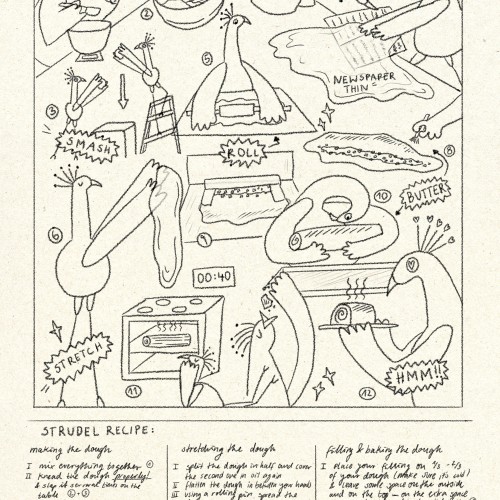 2
5
NEWSPAPER
THIN
3
SMASH
ROLL
8
BUTTER
10
6
9
00:40
STRETCH
11
12
HMM!!
STRUDEL RECIPE:
making the dough
I mix everything together
II knead the dough properly!
& slap it several times on the
table 2 + 3
stretching the dough
I split the dough in half and cover
the second one in oil again
II flatten the dough in behind your hands
III using a rolling pin, spread the
filling & baking the dough
I place your filling on 1/3 - 2/3
of your dough (make sure it's cold)
& leave some space on the outside
and on the top - on the extra space